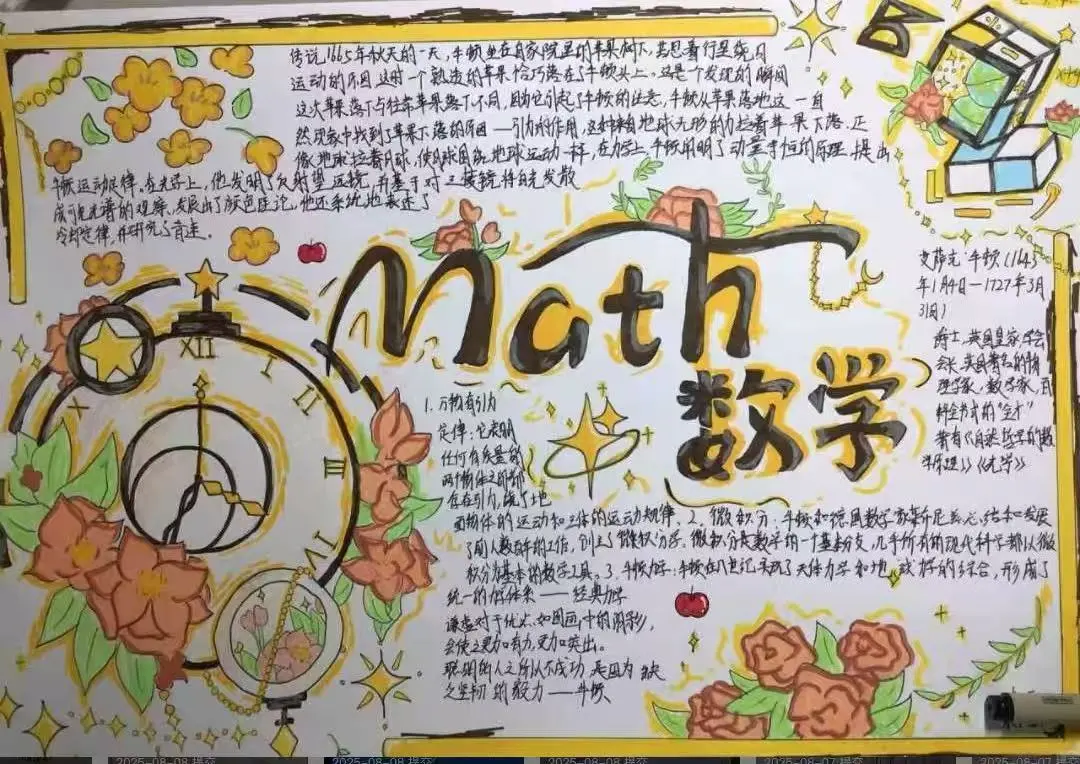 传说1665年秋天的一天，牛顿坐在自家院里的苹果树下，苦思着行星绕日
运动的原因。这时，一个熟透的苹果恰巧落在了牛顿头上。这是个发现的瞬间
这次苹果落下与往常苹果落下不同，因为它引起了牛顿的注意，牛顿从苹果落地这一自
然现象中找到了苹果下落的原因——引力的作用，这种来自地球无形的力拉着苹果下落，正
像地球拉着月球，使月球围绕地球运动一样，在力学上，牛顿阐明了动量守恒的原理，提出
牛顿运动定律，在光学上，他发明了反射望远镜，并基于对三棱镜将白光发散
成可见光谱的观察，发展出了颜色理论，他还系统地表述了
冷却定律，并研究了音速。
Math
数学
XII
I
II
III
IV
X
艾萨克·牛顿（1643
年1月4日—1727年3月
31日）
爵士，英国皇家学会
会长，英国著名的物
理学家、数学家，百
科全书式的“全才”
著有《自然哲学的数
学原理》《光学》
1.万物有引力
定律：它表明
任何有质量的
两个物体之间都
存在引力，
面物体的运动和立体的运动规律。2、微积分：牛顿和德国数学家莱布尼兹
了前人数百年的工作，创立了微积分学。微积分是数学的一个基本分支，几乎所有的现代科学都以微
积分为基本的数学工具。3、牛顿力学：牛顿在 世纪实现了天体力学和地 力学的综合，形成了
统一的力学体系——经典力学
谦虚对于优点，如图画中的阴影，
会使之更加有力，更加突出。
聪明的人之所以不成功，是因为缺
乏坚韧的毅力——牛顿
B
2025-08-08 提交
2025-08-08 提交
2025-08-08 提交
2025-08-07 提交
2025-08-07 提交